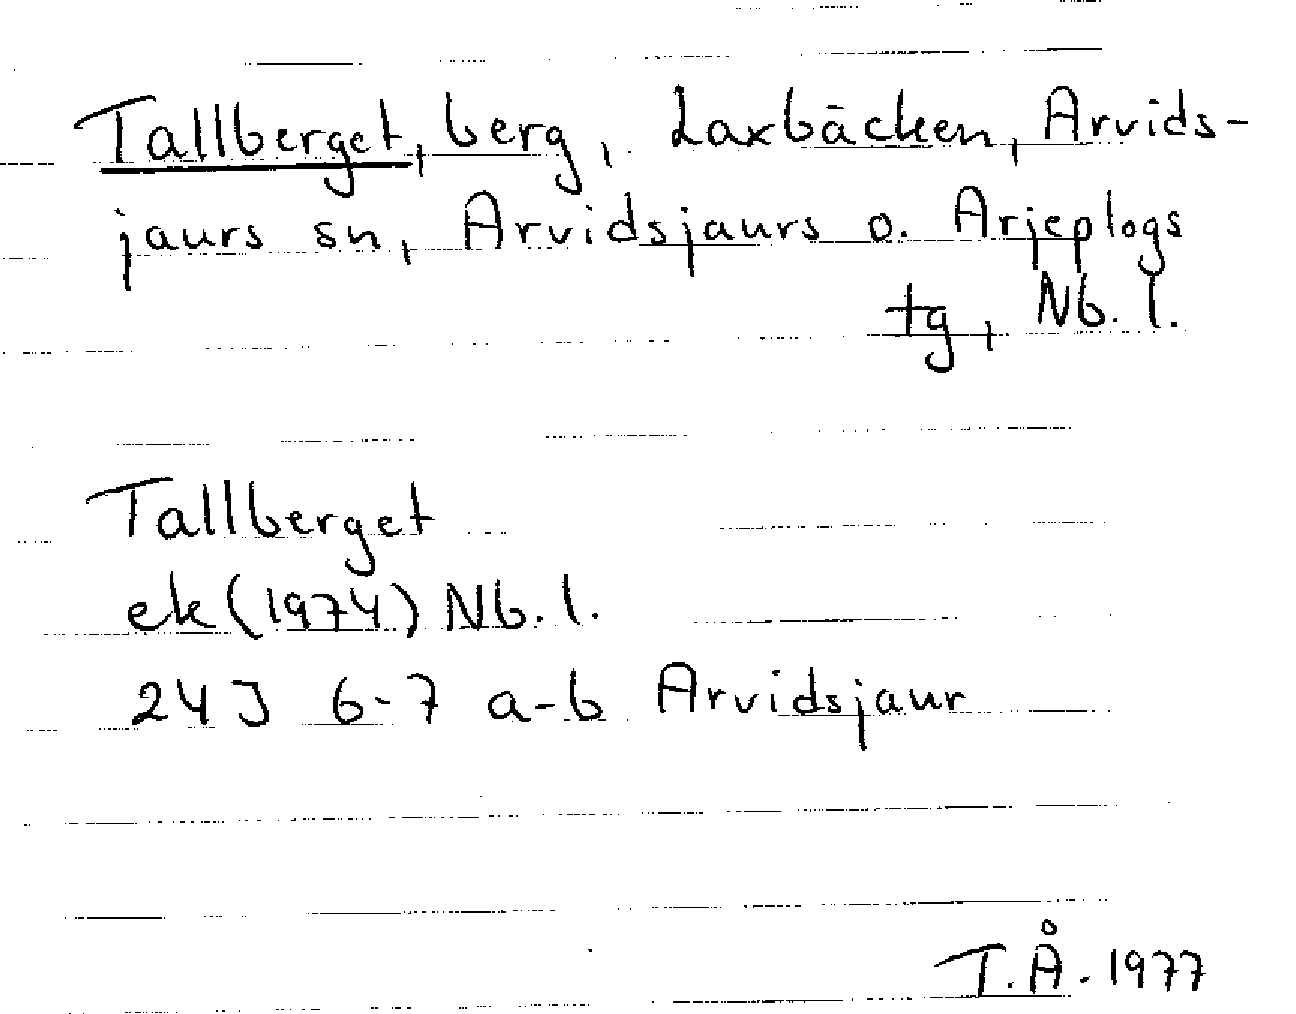 Tallberget, berg, Laxbäcken, Arvids-
jaurs sn, Arvidsjaurs o. Arjeplogs
tg, Nb. l.
Tallberget
ek (1974) Nb. l.
24J 6-7 a-b Arvidsjaur
T.Å. 1977